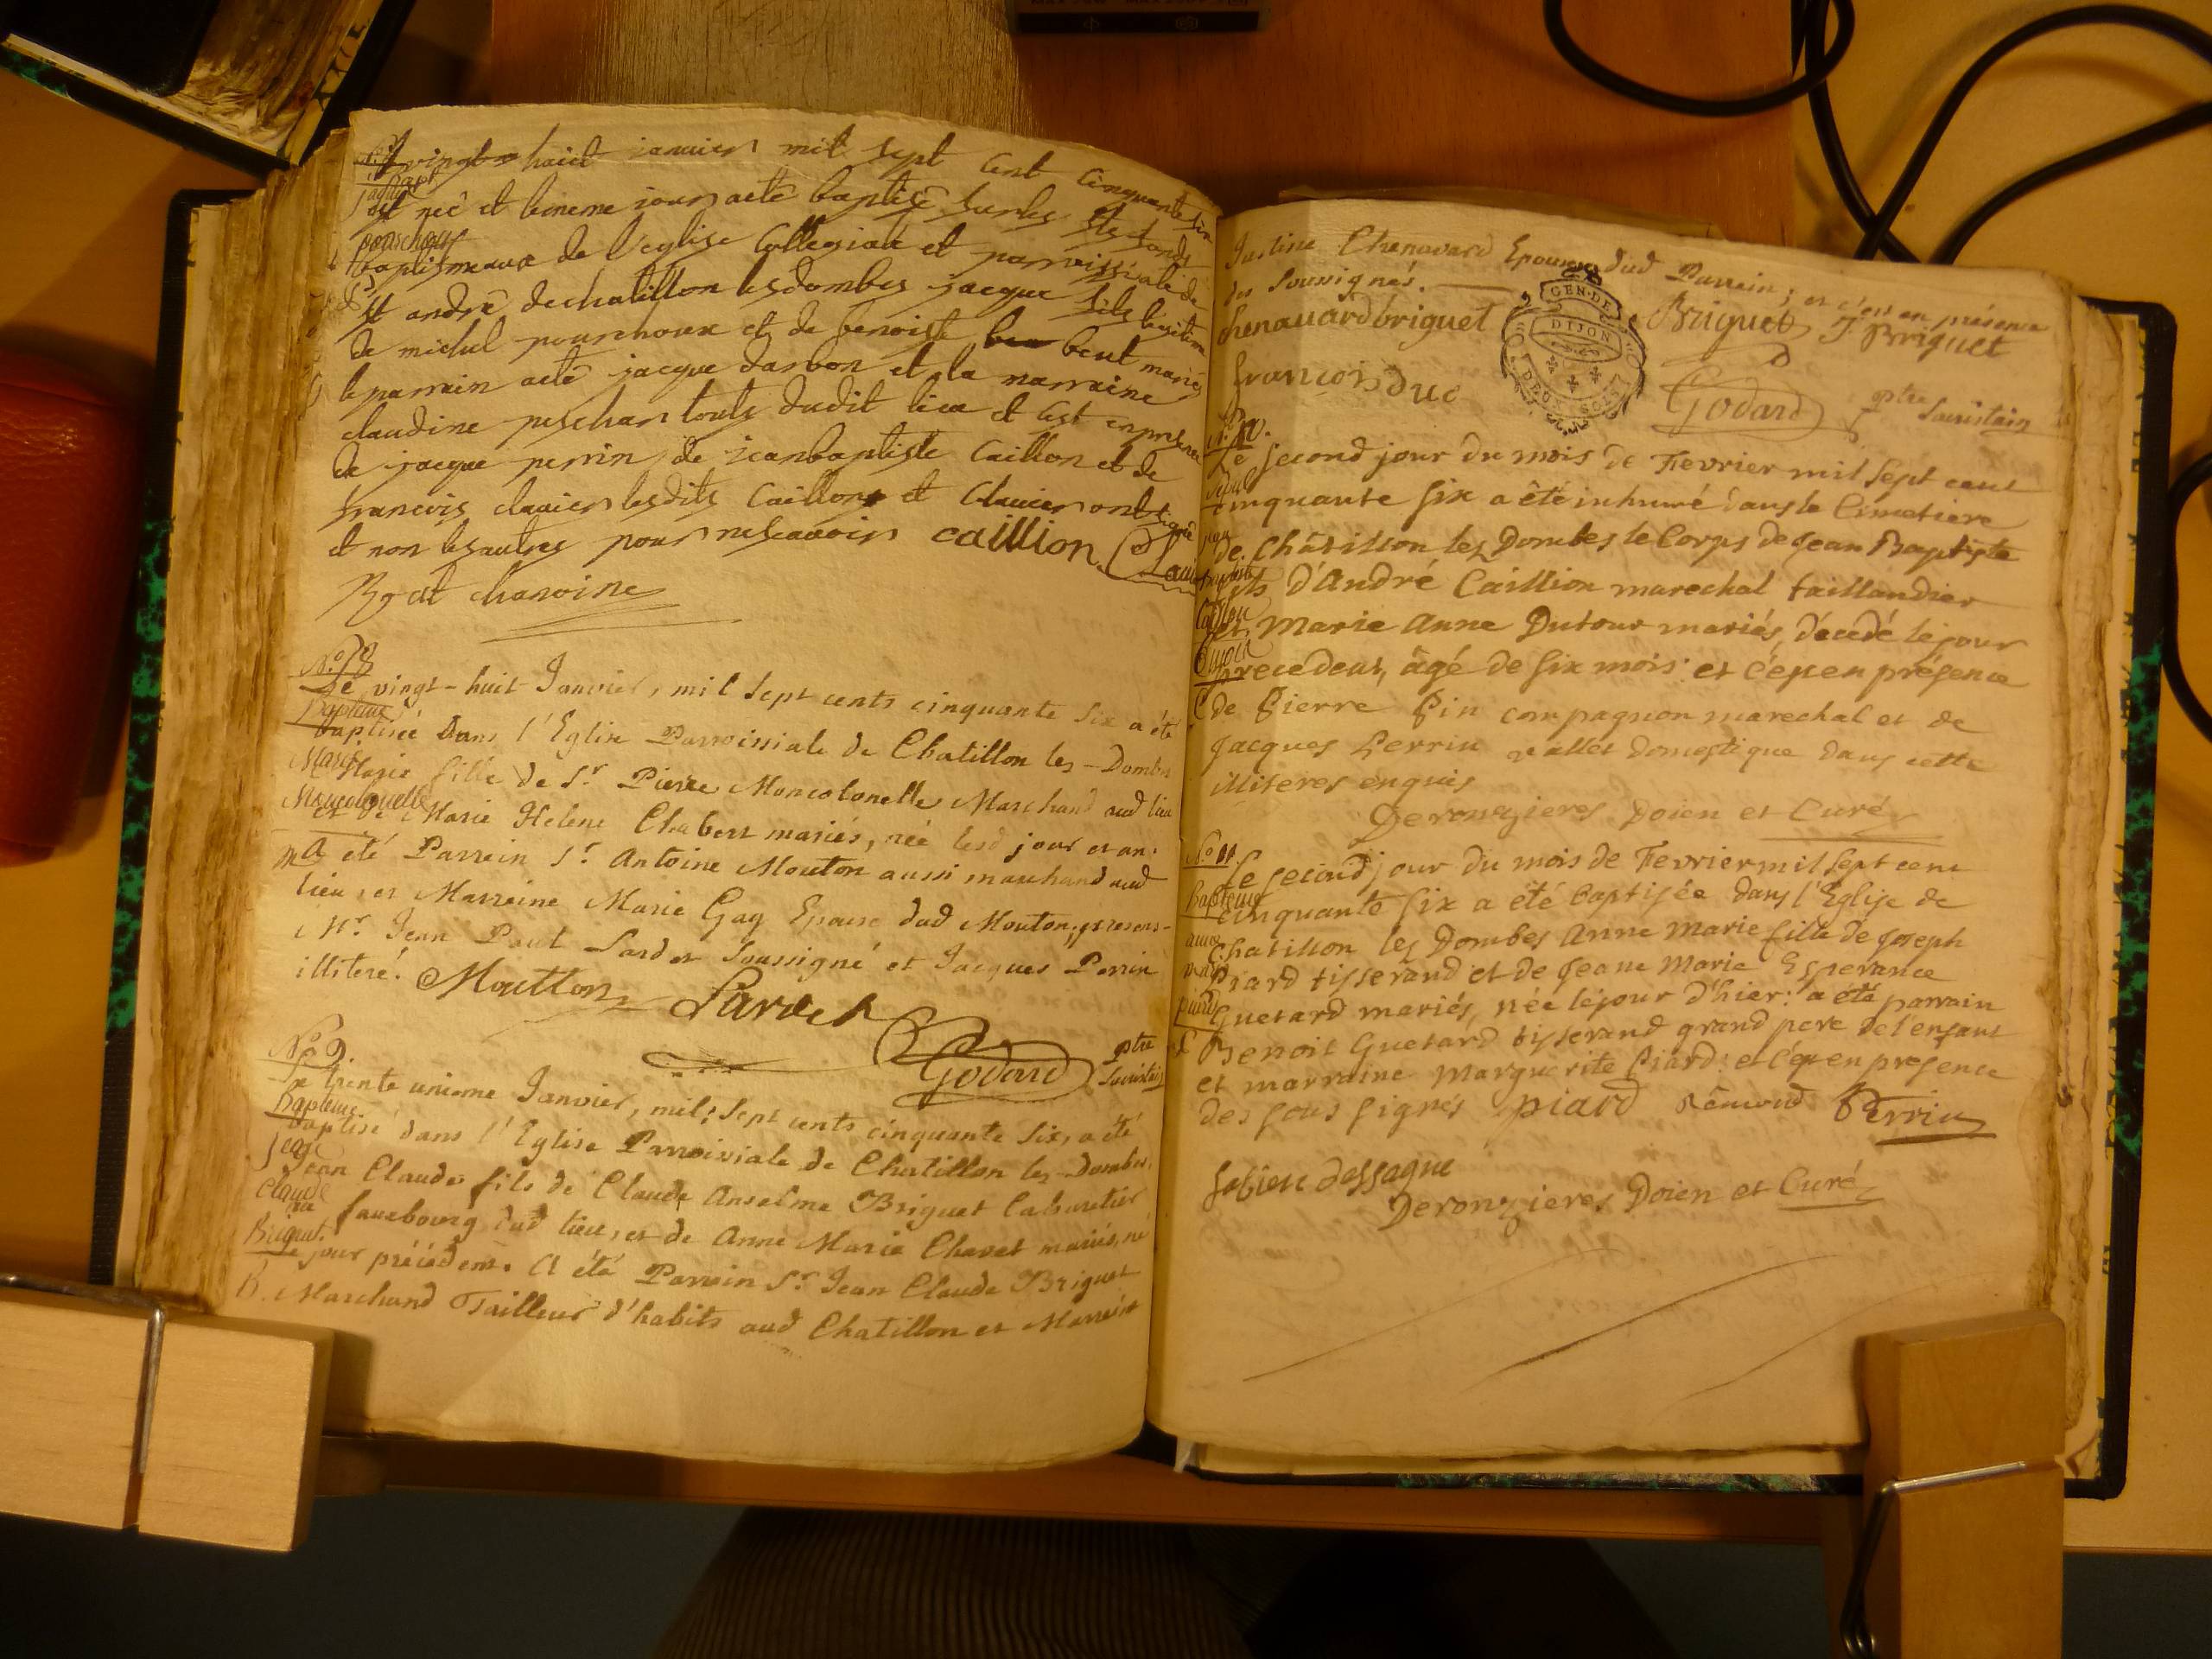 vingt huict januier mil sept cent cinquante six
est neé et le meme iour a eté baptisé sur les sts fonds
baptismeaux de l'eglise Collegiale et parroissiale de
st andré de chatillon les dombes jacque fils legitime
de michel pourchoux et de benoiste beut mariés
le parrain a eté jacque darbon et la marraine
claudine peschar touts dudit lieu et c'est en presence
de jacque perrin de jean baptiste Caillion et de
francois clauier lesdits Caillon et Clauier ont signé
et non les autres pour ne scauoir caillion Clauier
chanoine
N.º 8
Le vingt-huit Janvier, mil sept cents cinquante six a été
Bapteme
baptisée dans l'Eglise Parroissiale de Chatillon les-Dombes
Marie
Marie fille de Sr. Pierre Moncolonelle Marchand aud lieu
Moncolonelle
et de Marie Helene Chabert mariés, née lesd jour et an.
A eté Parrein Sr. Antoine Mouton aussi marchand aud
lieu, et Marreine Marie Gay Epouse dud Mouton; presens
Mr. Jean Paul Lardet soussigné et Jacques Perrin
illiteré. Moutton Lardet
Godard ptre Sacristain
N.º 9.
Le trente unieme Janvier, mil; sept cents cinquante six, a été
Bapteme
baptisé dans l'Eglise Parroissiale de Chatillon les-Dombes,
Jean
Jean Claude fils de Claude Anselme Briguet Cabaretier
Claude
au fauxbourg dud lieu, et de Anne Marie Chavet mariés, né
Briguet.
le jour précédent. A été Parrein Sr. Jean Claude Briguet
B. Marchand Tailleur d'habits aud Chatillon et Marreine
Justine Chenavard Epouse dud Parrein; et c'est en présence
des soussignés.
chenauard briguet Briguet J Briguet
GEN. DE
DIJON
françois duc Godard ptre Sacristain
N.º 10.
Le second jour du mois de Fevrier mil sept cent
sepul
cinquante six a été inhumé dans le Cimetiere
jean
de Châtillon les Dombes le Corps de Jean Baptiste
baptiste
fils d'André Caillion marechal taillandier
Caillion
et Marie Anne Dutour mariés, décedé le jour
precedent, âgé de six mois: et c'est en présence
de Pierre Pin compagnon marechal et de
Jacques Perrin vallet domestique dans cette
illiteres enquis
Deronzieres Doien et Curé
N.º 11
Le second jour du mois de Fevrier mil sept cent
Bapteme
cinquante six a été baptisée dans l'Eglise de
anne
Chatillon les Dombes Anne Marie fille de Joseph
marie
Piard tisserand et de Jeane Marie Esperance
piard
Guetard mariés, née le jour d'hier: a été parrain
Benoit Guetard tisserand grand pere de l'enfant
et marraine Marguerite Piard: et c'est en presence
des sous signés piard Rémond Perrin
fabien dessaque
Deronzieres Doien et Curé